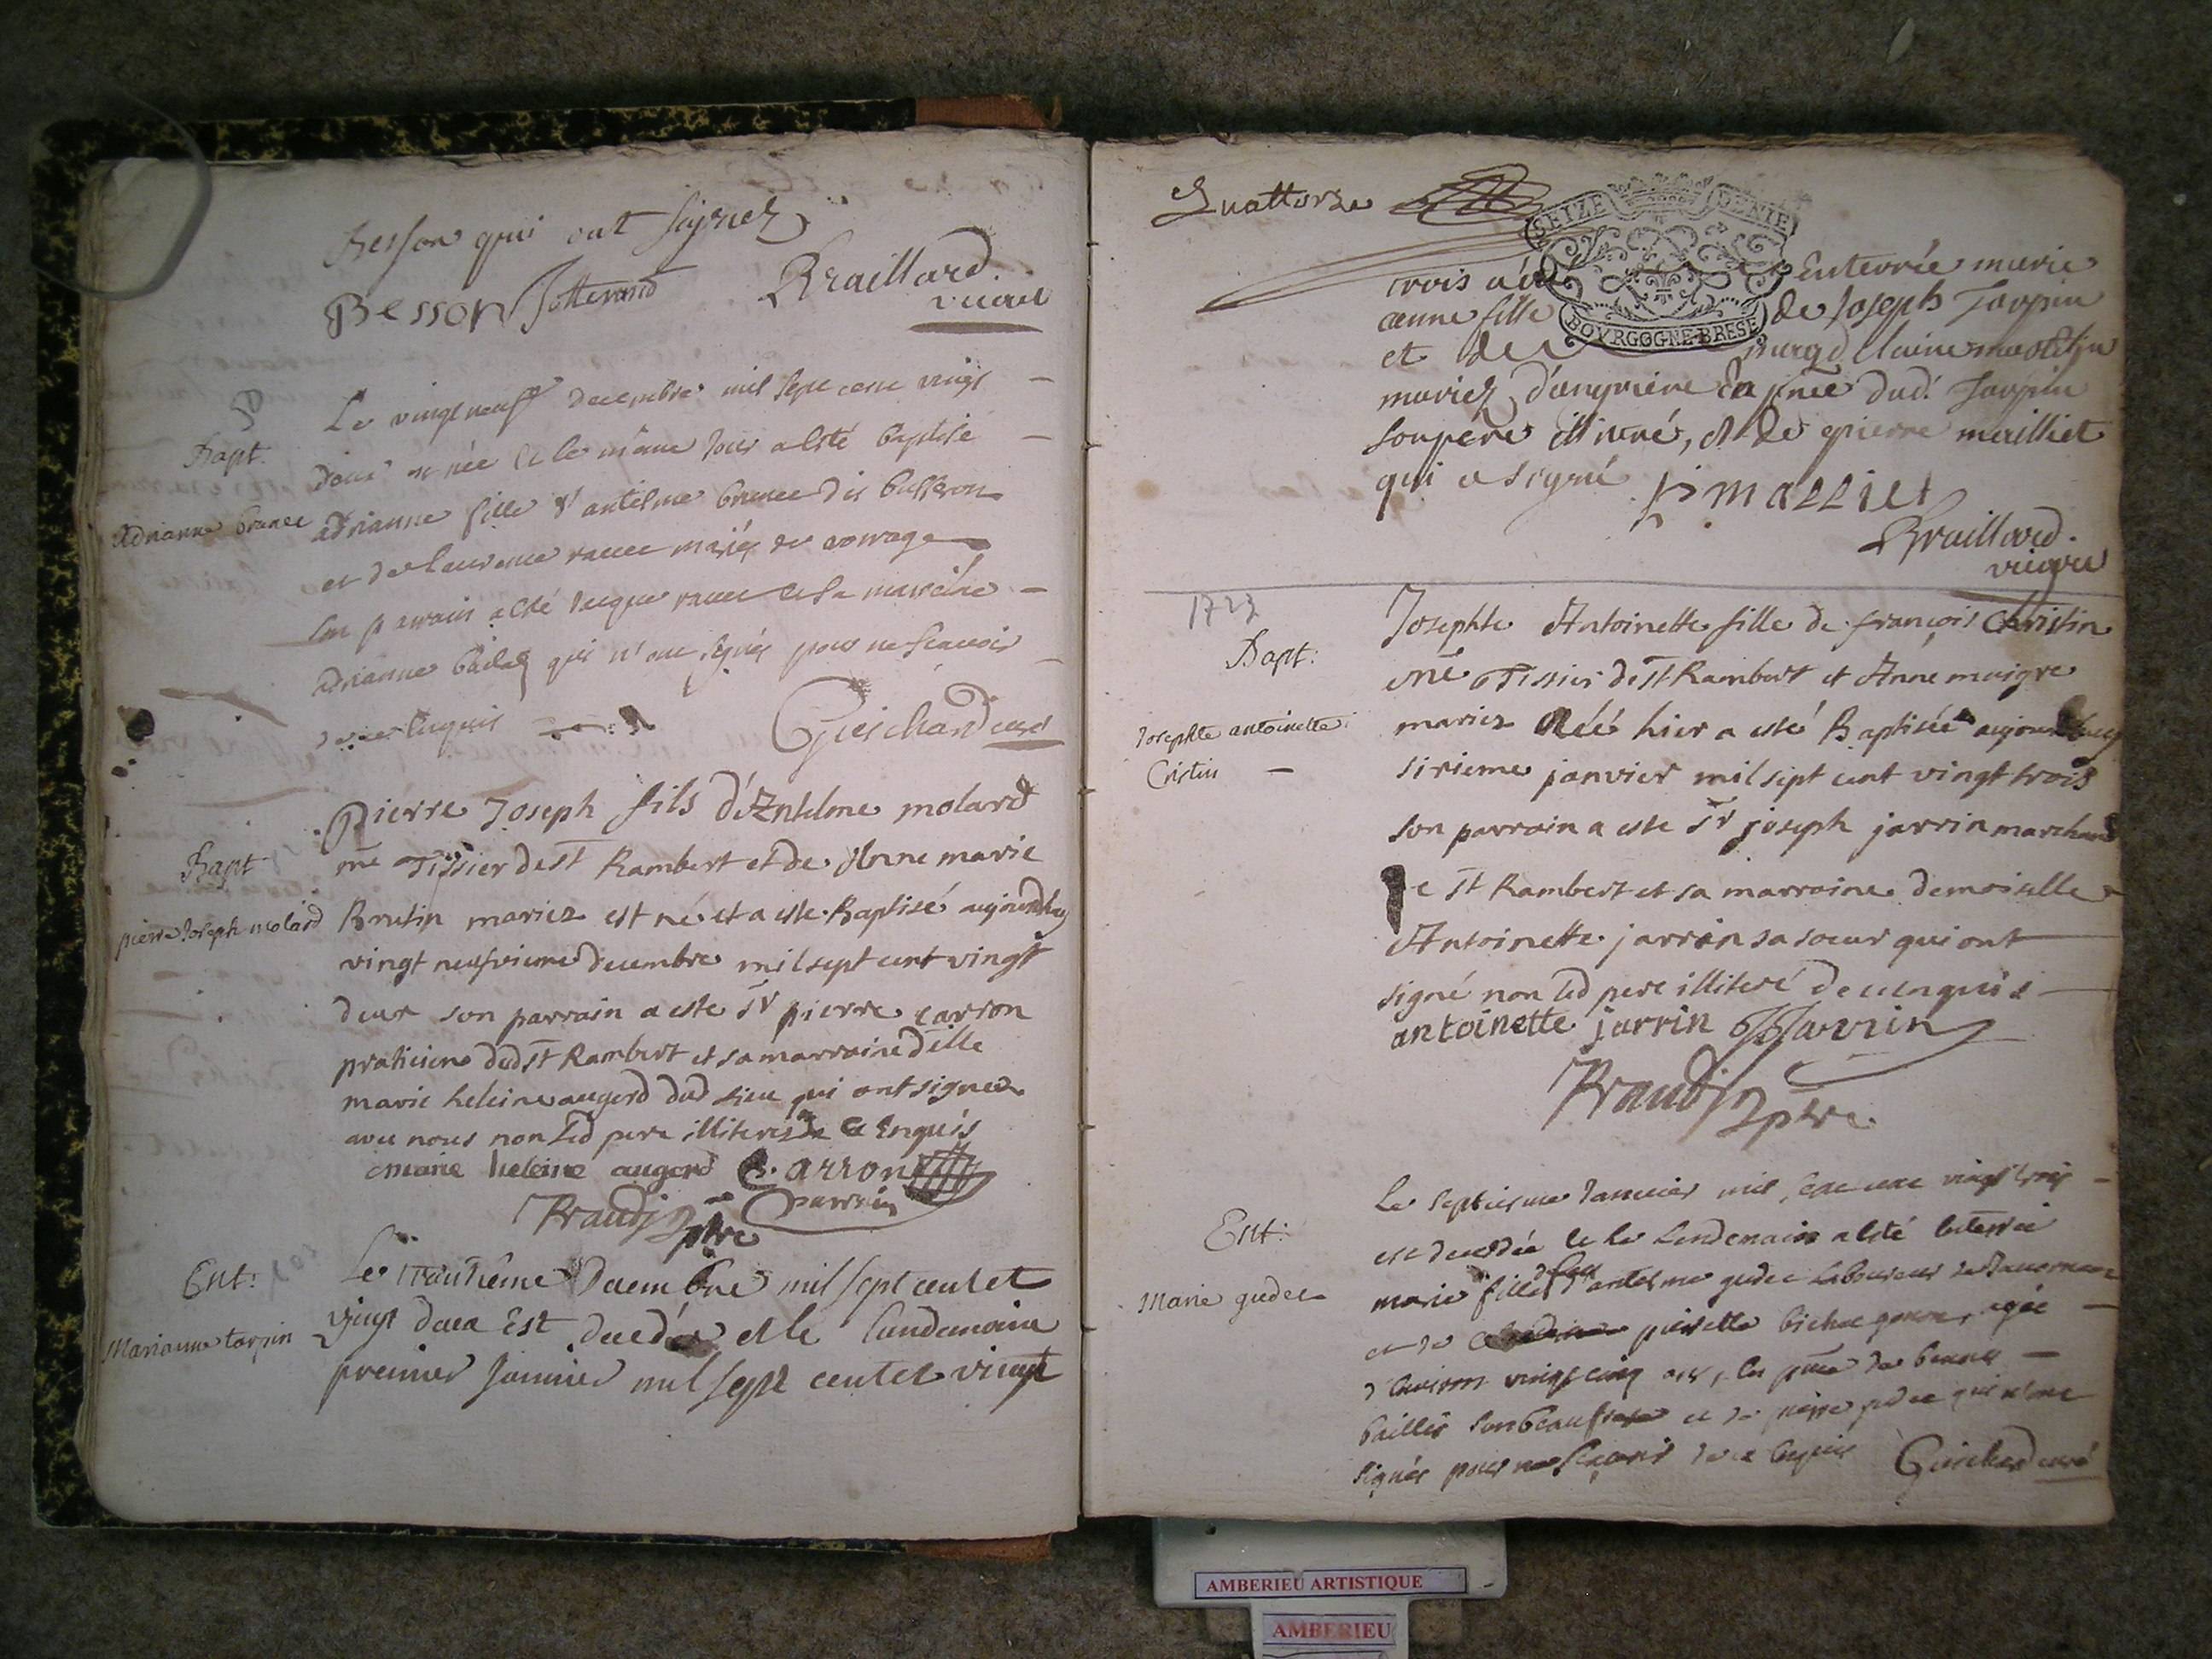 Besson qui ont signez
Besson Jotterand Braillard
vicaire
Bapt.
adrianne brunee
Le vingt neuf decembre mil sept cent vingt
deux est née et le même jour a esté baptisé
adrianne fille d'antelme brunee dit
et de laurence racee mariez de
son parain a esté racee et sa maraine
adrianne qui n'ont signés pour ne scavoir
de ce enquis Guichard curé
Bapt
pierre Joseph molard
Pierre Joseph fils d'Antelme molard
me Tissier de st Rambert et de Anne marie
Brutin mariez est né et a este Baptisé aujourdhuy
vingt neufvieme decembre mil sept cent vingt
deux son parrain a este Sr pierre carron
praticien dud st Rambert et sa marraine dlle
marie heleine augerd dud lieu qui ont signez
avec nous non led pere illiteré de ce Enquis
marie heleine augerd C. arron
parrain
Braudj ptre
Ent:
Marianne tarpin
Le trantième decembre mil sept cent et
vingt deux Est decedée et le landemain
premier Janvier mil sept cent et vingt
Quattorze
SEIZE DENIE
BOVRGOGNE·BRESE
trois a été Enterrée marie
anne fille de Joseph Tarpin
et de Claine
mariez, En pnce dud. Tarpin
son père illitéré, et de pierre mailliet
qui a signé P maLLiet
Braillard
vicaire
1723
Bapt:
Josephte antoinette
Cristin
Josephte Antoinette fille de françois Christin
me Tissier de st Rambert et Anne maigre
mariez née hier a esté Baptisée aujourdhuy
sixieme janvier mil sept cent vingt trois
son parrain a este Sr joseph jarrin marchand
de st Rambert et sa marraine demoiselle
Antoinette jarrin sa soeur qui ont
signé non led pere illiteré de ce enquis
antoinette jarrin JJarrin
Braudj ptre.
Ent:
Marie gudee
Le septiesme Janvier mil sept cent vingt trois
est decedée et le Lendemain a esté Enterrée
marie fille d'antelme gudee Laboureur
et de pierrette agée
d'environ vingt cinq ans, En pnce de
baillis son beaufrere et de pierre qui n'ont
signés pour ne sçavoir de ce enquis Guichard curé
AMBERIEU ARTISTIQUE
AMBERIEU